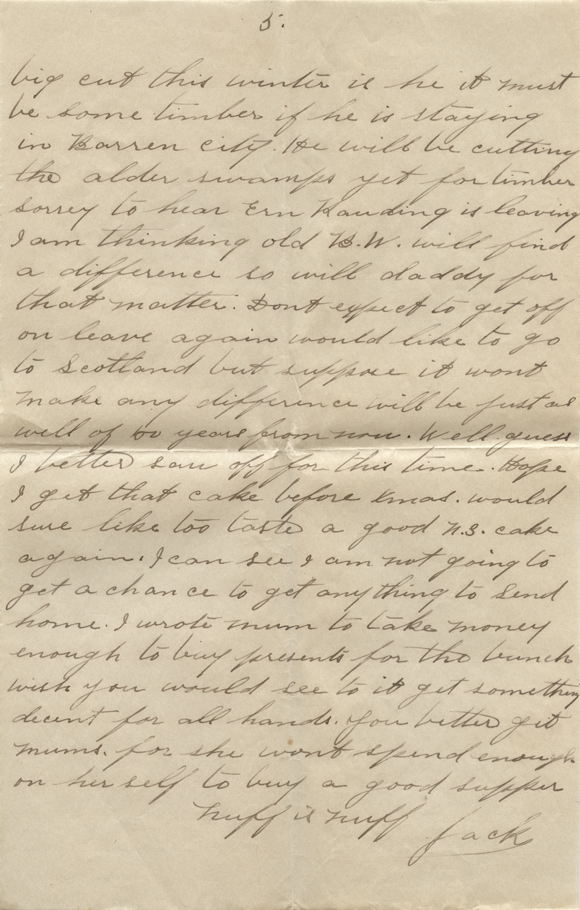 5.
big cut this winter is he it must
be some timber if he is staying
in Barren City. He will be cutting
the alder swamps yet for timber
sorrey to hear Ern is leaving
I am thinking old B.W. will find
a difference so will daddy for
that matter. Dont expect to get off
on leave again would like to go
to Scotland but suppose it wont
make any difference will be just as
well of 60 years from now. Well guess
I better saw off for this time. Hope
I get that cake before Xmas. would
sure like too taste a good N.S. cake
again. I can see I am not going to
get a chance to get anything to send
home. I wrote mum to take money
enough to buy presents for the bunch
wish you would see to it get something
decent for all hands. You better get
mums. for she wont spend enough
on her self to buy a good supper
nuff is nuff Jack